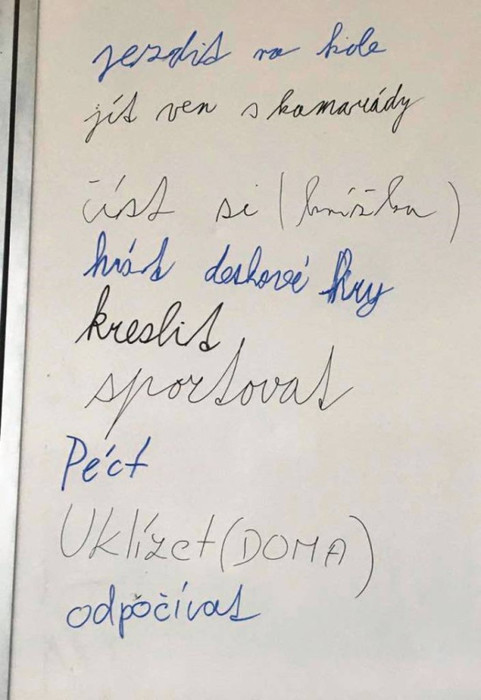 jezdit na kole
jít ven s kamarády
číst si (knížku)
hrát deskové hry
kreslit
sportovat
Péct
Uklízet (DOMA)
odpočívat